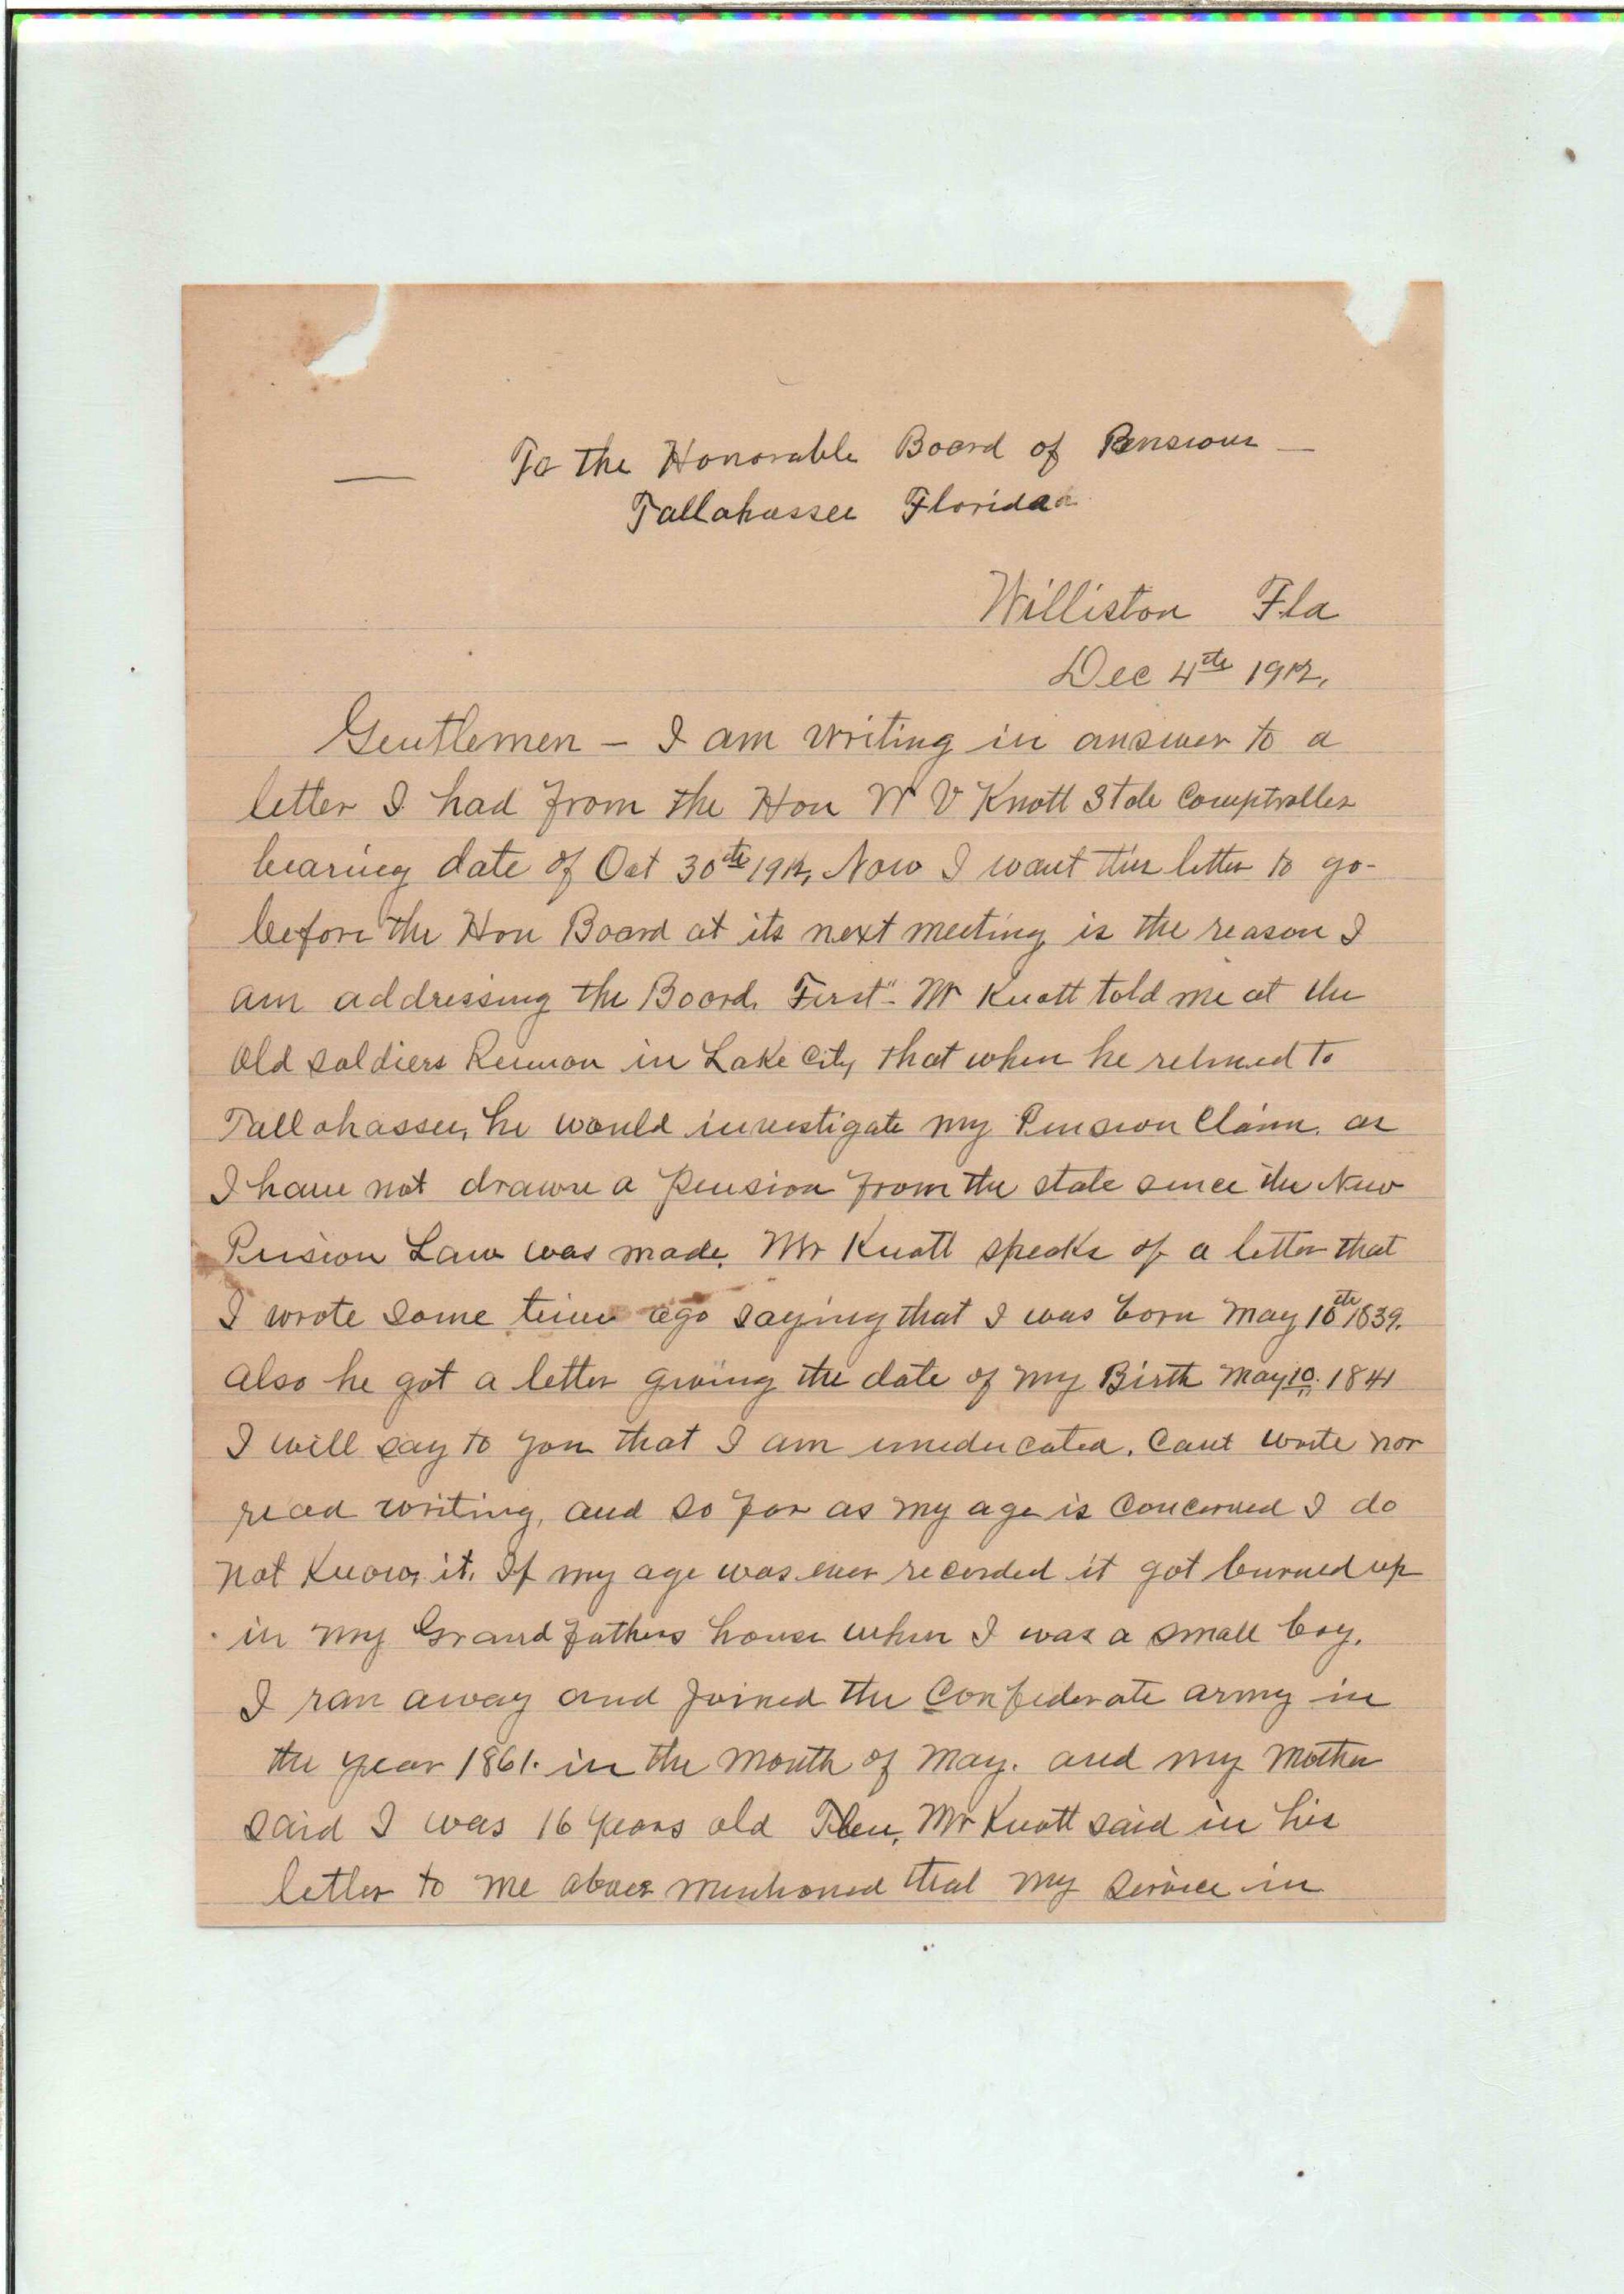 To the Honorable Board of Pensions —
Tallahassee Florida
Williston Fla
Dec 4th 1912,
Gentlemen – I am writing in answer to a
letter I had from the Hon W V Knott State Comptroller
bearing date of Oct 30th 1912, Now I want this letter to go-
before the Hon Board at its next meeting is the reason I
am addressing the Board. First"- Mr Knott told me at the
Old soldiers Reunion in Lake City, that when he returned to
Tallahassee, he would investigate my Pension Claim. as
I have not drawn a pension from the state since the New
Pension Law was made. Mr Knott speaks of a letter that
I wrote some time ago saying that I was born May 10th 1839.
also he got a letter giving the date of my Birth May 10. 1841
I will say to you that I am uneducated. Cant write nor
read writing, and so far as my age is Concerned I do
not Know it. If my age was ever recorded it got burned up
in my Grand fathers house when I was a small boy.
I ran away and joined the Confederate army in
the year 1861. in the month of May. and my Mother
said I was 16 years old Then, Mr Knott said in his
letter to me above mentioned that my service in